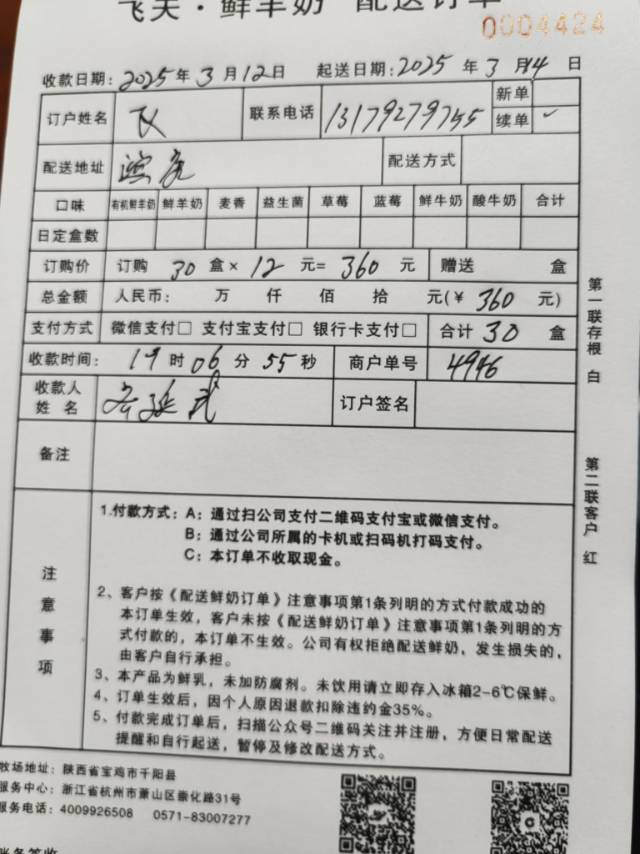 飞天·鲜羊奶 配送订单
0004424
收款日期：2025年3月12日 起送日期：2025年3月14日
订户姓名 联系电话 13179279755 新单
续单 ✓
配送地址 配送方式
口味 有机鲜羊奶 鲜羊奶 麦香 益生菌 草莓 蓝莓 鲜牛奶 酸牛奶 合计
日定盒数
订购价 订购 30 盒×12 元=360 元 赠送 盒
总金额 人民币： 万 仟 佰 拾 元(￥360元)
支付方式 微信支付□ 支付宝支付□ 银行卡支付□ 合计30盒
收款时间：19时06分55秒 商户单号 4946
收款人
姓名 订户签名
备注
注意事项
1.付款方式：A：通过扫公司支付二维码支付宝或微信支付。
B：通过公司所属的卡机或扫码机打码支付。
C：本订单不收取现金。
2、客户按《配送鲜奶订单》注意事项第1条列明的方式付款成功的
本订单生效，客户未按《配送鲜奶订单》注意事项第1条列明的方
式付款的，本订单不生效。公司有权拒绝配送鲜奶，发生损失的，
由客户自行承担。
3、本产品为鲜乳，未加防腐剂。未饮用请立即存入冰箱2-6℃保鲜。
4、订单生效后，因个人原因退款扣除违约金35%。
5、付款完成订单后，扫描公众号二维码关注并注册，方便日常配送
提醒和自行起送，暂停及修改配送方式。
第一联存根 白
第二联客户 红
牧场地址：陕西省宝鸡市千阳县
服务中心：浙江省杭州市萧山区崇化路31号
服务电话：4009926508 0571-83007277